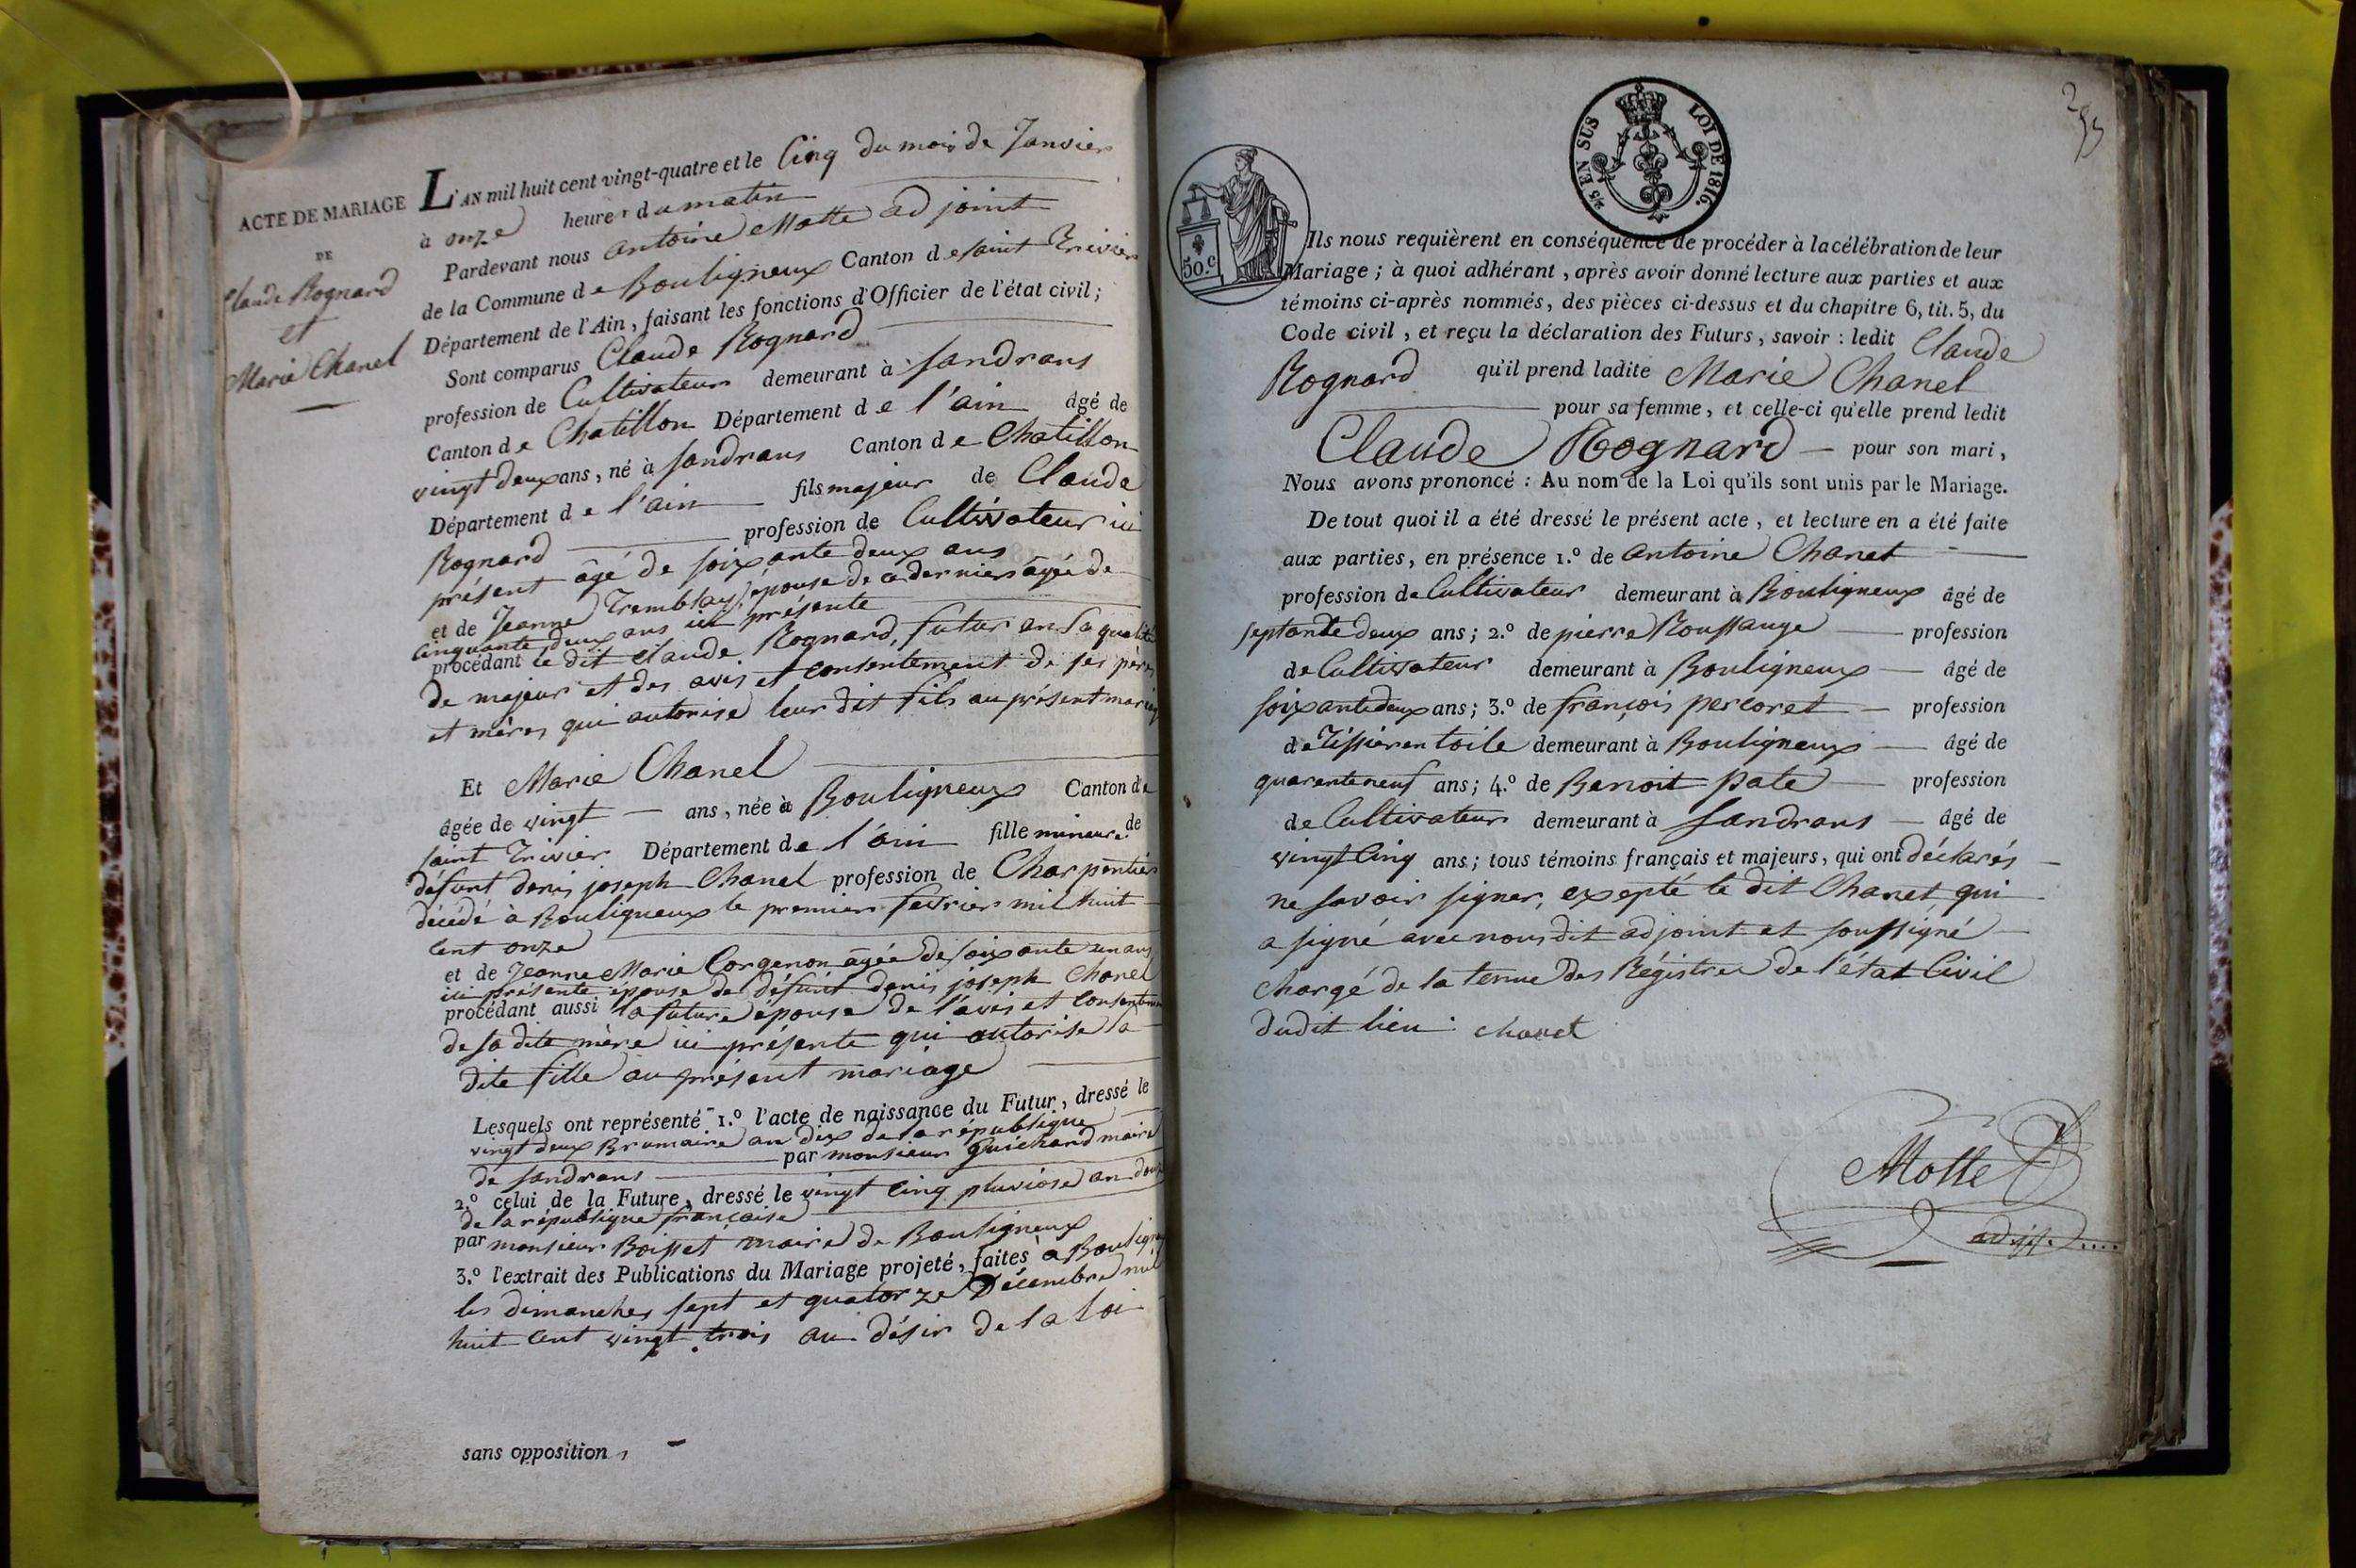 ACTE DE MARIAGE
DE
Claude Rognard
et
Marie Chanel
L'AN mil huit cent vingt-quatre et le Cinq du mois de Janvier
à onze heures du matin
Pardevant nous antoine Motte adjoint
de la Commune de Bouligneux Canton de saint Trivier
Département de l'Ain, faisant les fonctions d'Officier de l'état civil;
Sont comparus Claude Rognard
profession de Cultivateur demeurant à Sandrans
Canton de Chatillon Département de l'ain âgé de
vingt deux ans, né à Sandrans Canton de Chatillon
Département de l'ain fils majeur de Claude
Rognard profession de Cultivateur ici
présent âgé de soixante deux ans
et de Jeanne Tremblay épouse de ce dernier âgée de
cinquante deux ans ici présente
procédant le dit Claude Rognard, futur en sa qualité
de majeur et des avis et consentement de ses pères
et mères qui autorise leur dit fils au présent mariage
Et Marie Chanel
âgée de vingt ans, née à Bouligneux Canton de
saint Trivier Département de l'ain fille mineure de
défunt denis joseph Chanel profession de Charpentier
décédé à Bouligneux le premier fevrier mil huit
cent onze
et de Jeanne Marie Corgenon âgée de soixante un ans
ici présente épouse de défunt denis joseph Chanel
procédant aussi la future épouse de l'avis et consentement
de sa dite mère ici présente qui autorise sa
dite fille au présent mariage
Lesquels ont représenté 1.º l'acte de naissance du Futur, dressé le
vingt deux Brumaire an dix de la république
par monsieur Guichard maire
de Sandrans
2.º celui de la Future, dressé le vingt cinq pluviose an douze
de la république française
par monsieur Boisset maire de Bouligneux
3.º l'extrait des Publications du Mariage projeté, faites à Bouligneux
les dimanches sept et quatorze Décembre mil
huit cent vingt trois au désir de la loi
sans opposition,
293
2/5 EN SUS LOI DE 1816.
50.c
Ils nous requièrent en conséquence de procéder à la célébration de leur
Mariage; à quoi adhérant, après avoir donné lecture aux parties et aux
témoins ci-après nommés, des pièces ci-dessus et du chapitre 6, tit. 5, du
Code civil, et reçu la déclaration des Futurs, savoir: ledit Claude
Rognard qu'il prend ladite Marie Chanel
pour sa femme, et celle-ci qu'elle prend ledit
Claude Rognard pour son mari,
Nous avons prononcé: Au nom de la Loi qu'ils sont unis par le Mariage.
De tout quoi il a été dressé le présent acte, et lecture en a été faite
aux parties, en présence 1.º de antoine Chanet
profession de Cultivateur demeurant à Bouligneux âgé de
septante deux ans; 2.º de pierre Roussange profession
de Cultivateur demeurant à Bouligneux âgé de
soixante deux ans; 3.º de françois percoret profession
de Tissier en toile demeurant à Bouligneux âgé de
quarente neuf ans; 4.º de Benoit pate profession
de Cultivateur demeurant à Sandrans âgé de
vingt cinq ans; tous témoins français et majeurs, qui ont déclarés
ne savoir signer, exepté le dit Chanet qui
a signé avec nous dit adjoint et soussigné
chargé de la tenue des Régistres de l'état Civil
dudit lieu: chanet
Motte